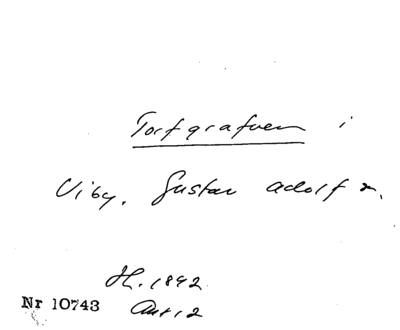 Torfgrafven i
Viby, Gustav Adolf s.
H. 1892
Nr 10743
Ant 12